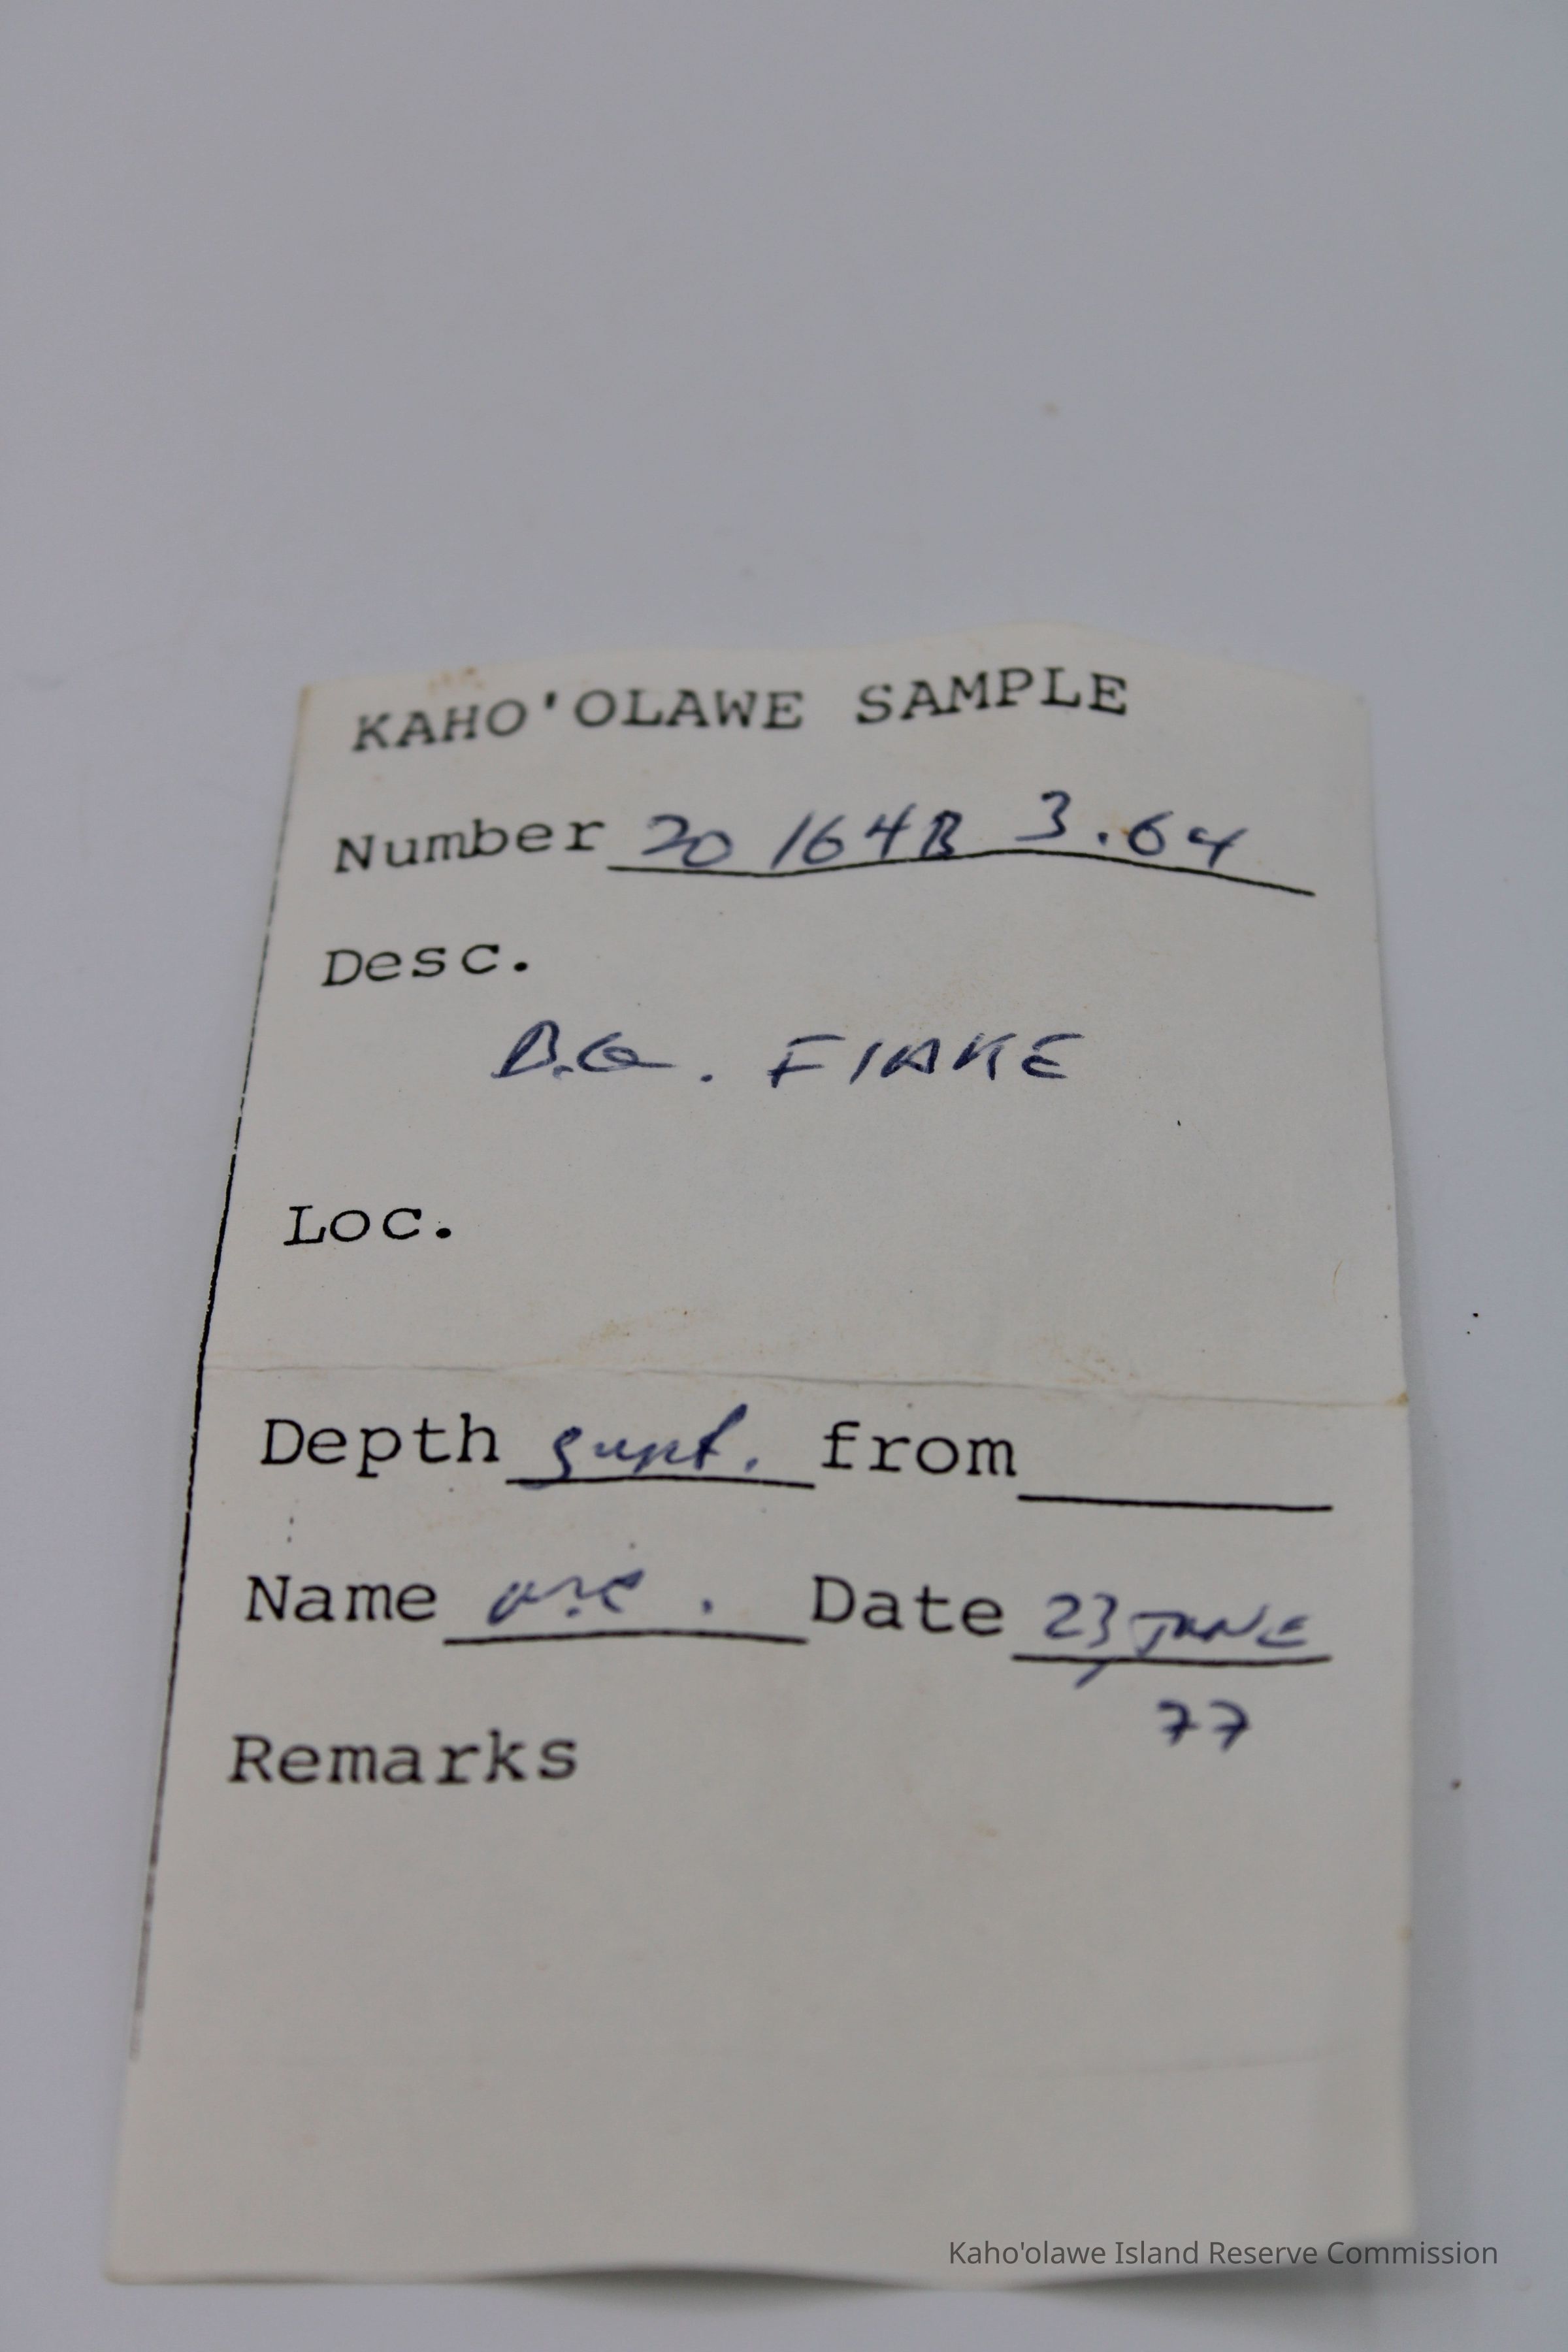 KAHO'OLAWE SAMPLE
Number 20 164B 3.64
Desc.
B.G. FLAKE
Loc.
Depth surf. from
Name Date 23 JUNE
77
Remarks
Kaho'olawe Island Reserve Commission